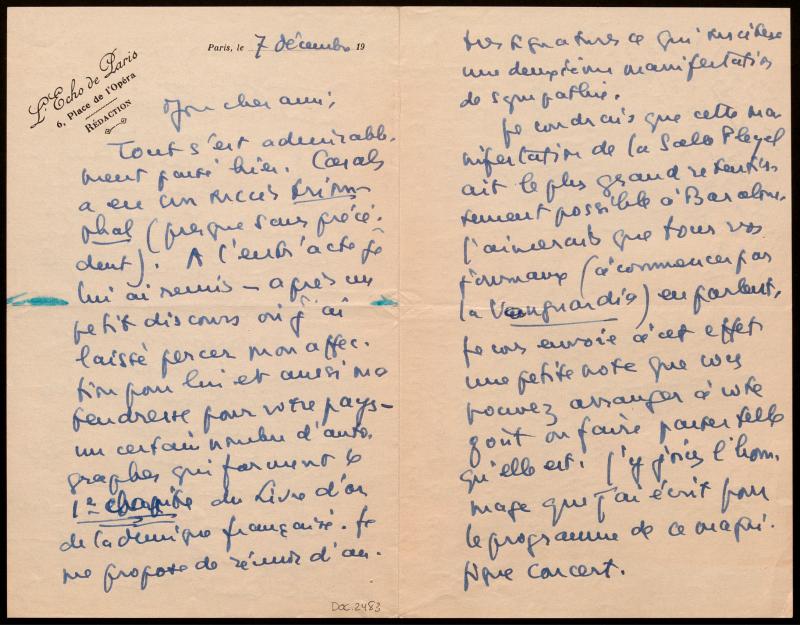 L'Echo de Paris
6, Place de l'Opéra
RÉDACTION
Paris, le 7 décembre 19
Mon cher ami,
Tout s'est admirable-
ment passé hier. Casals
a eu un succès triom-
phal (presque sans précé-
dent). A l'entr'acte je
lui ai remis — après un
petit discours où j'ai
laissé percer mon affec-
tion pour lui et aussi ma
tendresse pour votre pays —
un certain nombre d'auto-
graphes qui forment le
1er chapitre du Livre d'or
de la musique française. Je
me propose de réunir d'au-
tres signatures ce qui suscitera
une deuxième manifestation
de sympathie.
Je voudrais que cette ma-
nifestation de la Salle Pleyel
ait le plus grand retentis-
sement possible à Barcelone.
J'aimerais que tous vos
journaux (à commencer par
la Vanguardia) en parlent.
Je vous envoie à cet effet
une petite note que vous
pouvez arranger à votre
goût ou faire passer telle
qu'elle est. J'y joins l'hom-
mage que j'ai écrit pour
le programme de ce magni-
fique concert.
Doc. 2483